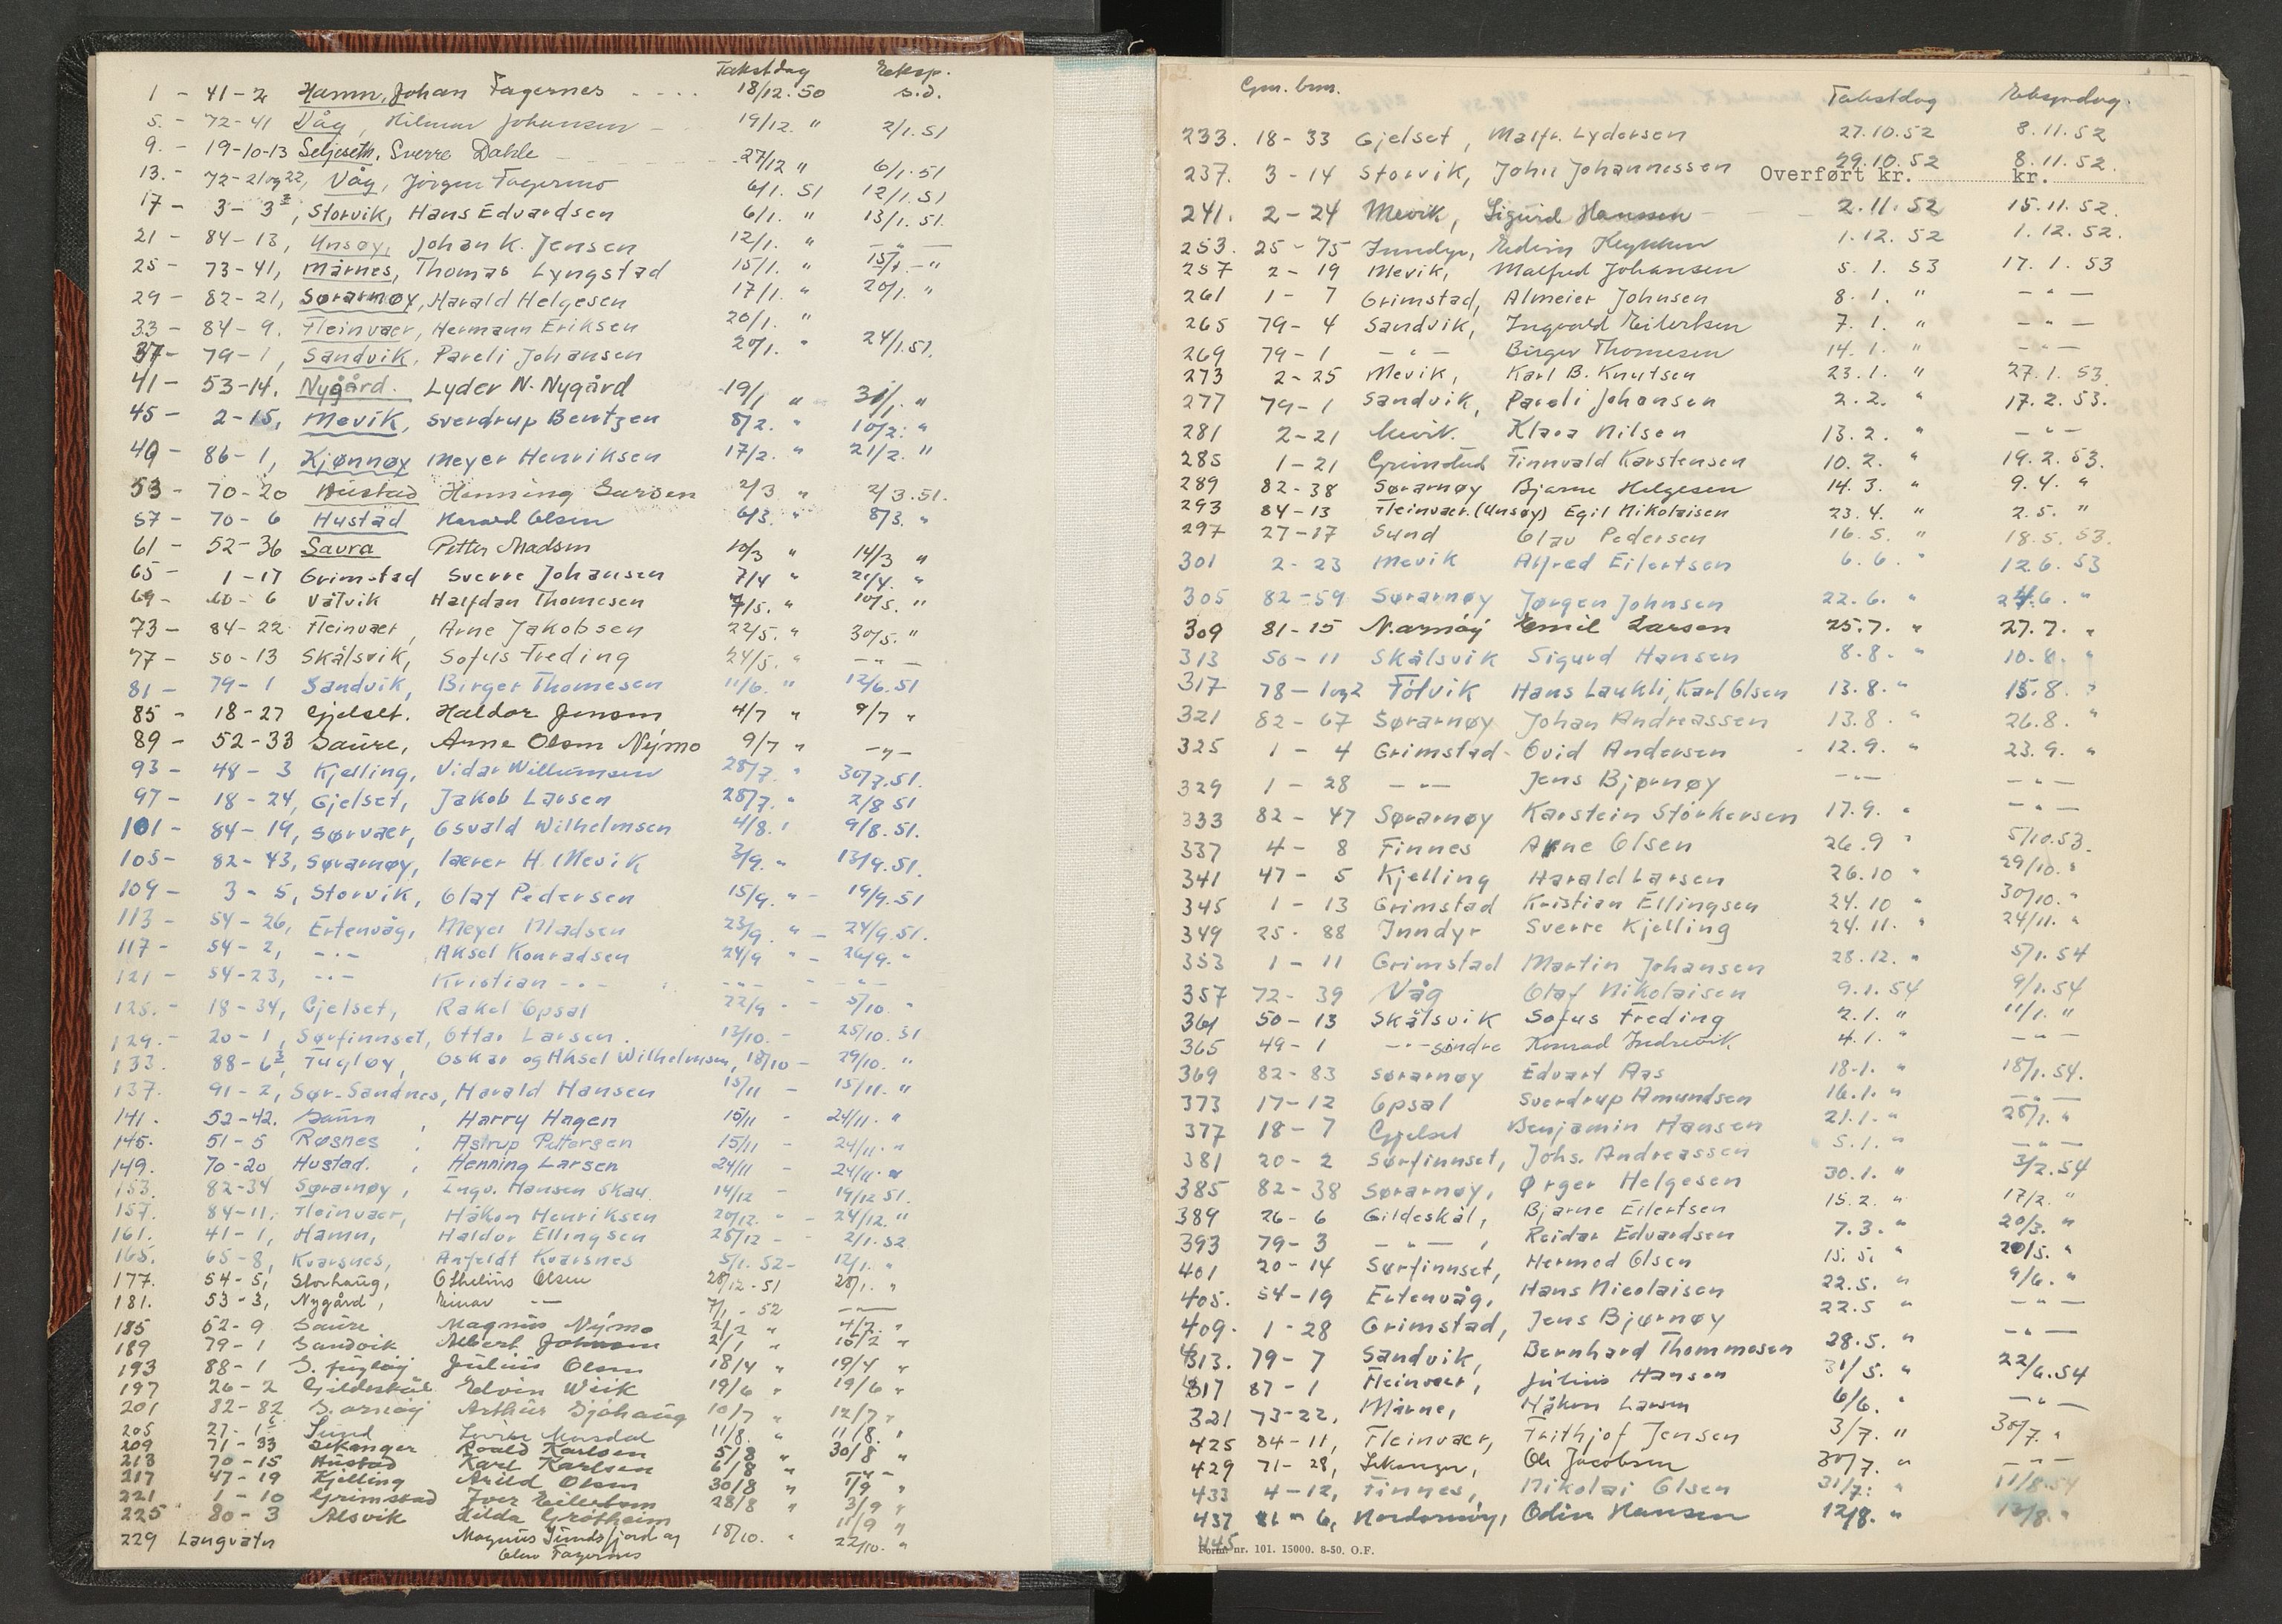 Takstdag Eksp.
1 - 41-2 Hamn, Johan Fagernes - - - - 18/12.50 s.d.
5. - 72-41 Våg, Hilmar Johansen - 19/12. " 2/1.51
9. - 19-10-13 Seljeseth, Sverre Dahle - - - - 27/12 " 6/1.51
13. - 72-21og22, Våg, Jörgen Fagermo 6/1. 51 12/1.51
17 - 3-3, Storvik, Hans Edvardsen 6/1. " 13/1.51.
21 - 84-13, Unsøy, Johan K. Jensen 12/1. " — " —
25 - 73-41, Mårnes, Thomas Lyngstad 15/1. " 15/1. - "
29 - 82-21, Sørarnøy, Harald Helgesen 17/1. " 20/1. "
33 - 84-9. Fleinvær, Hermann Eriksen 20/1. "
37 - 79-1, Sandvik, Pareli Johansen 20/1. " 24/1.51.
41 - 53-14. Nygård. Lyder N. Nygård 19/1 " 31/1. "
45 - 2-15, Mevik, Sverdrup Bentzen 8/2. " 10/2. "
49 - 86-1, Kjønnøy Meyer Henriksen 17/2. " 21/2. "
53 - 70-20 Hustad Henning Larsen 2/3 " 2/3.51.
57 - 70-6 Hustad Harald Olsen 6/3. " 8/3. "
61 - 52-36 Saura Petter Madsen 10/3 " 14/3 "
65 - 1-17 Grimstad Sverre Johansen 7/4 " 21/4. "
69 - 60-6 Våtvik Halfdan Thomesen 7/5. " 10/5. "
73 - 84-22 Fleinvær, Arne Jakobsen 22/5. " 30/5. "
77 - 50-13 Skålsvik, Sofus Freding 24/5. " — " —
81 - 79-1 Sandvik, Birger Thomesen 11/6. " 12/6.51
85 - 18-27 Gjelset. Haldor Jensen 4/7 " 9/7 "
89 - 52-33 Saure, Arne Olsen Nymo 9/7 " — " —
93 - 48-3 Kjelling, Vidar Willumsen 28/7. " 30/7.51.
97 - 18-24, Gjelset, Jakob Larsen 28/7. " 2/8 51
101 - 84-19, Sørvær, Osvald Wilhelmsen 4/8. " 9/8.51.
105 - 82-43, Sørarnøy, lærer H. Mevik 3/9. " 13/9.51.
109 - 3-5, Storvik, Olaf Pedersen 15/9. " - 19/9.51
113 - 54-26, Ertenvåg, Meyer Madsen 23/9. " - 24/9.51.
117 - 54-2, - " - Aksel Konradsen 24/9 " - 26/9. "
121 - 54-23, - " - Kristian - " - - " - - " -
125. - 18-34, Gjelset, Rakel Opsal 22/9 - - 5/10 "
129. - 20-1, Sørfinnset, Ottar Larsen. 12/10. - 25/10.51
133. 88-6, Fugløy, Oskar og Aksel Wilhelmsen, 18/10 - 29/10. "
137. 91-2, Sør-Sandnes, Harald Hansen 15/11 - 15/11. "
141. 52-42. Saura, Harry Hagen 15/11 - 24/11. "
145. 51-5 Røsnes, Astrup Pettersen 15/11 - 24/11. "
149. 70-20 Hustad, Henning Larsen 24/11 - 24/11. "
153. 82-34 Sørarnøy, Ingv. Hansen Skau 14/12 - 19/12 51.
157. 84-11. Fleinvær, Håkon Henriksen 20/12. " - 24/12. "
161. 41-1, Hamn, Haldor Ellingsen 28/12 - - 2/1.52
165. 65-8, Kvarsnes, Anfeldt Kvarsnes 5/1.52 - 12/1. "
177. 54-5, Storhaug, Othelius Olsen 28/12-51 28/1. "
181. 53-3, Nygård, Einar - " - 7/1 - 52 — " —
185 52-9 Saure Magnus Nymo 2/2 "
189 79-1 Sandvik Albert Johnsen 2/1 " 15/2 "
193 88-1 S. fugløy Julius Olsen 18/4 " 19/4 "
197 26-2 Gildeskål Edvin Wiik 19/6 " 19/6 "
201 82-82 S. arnøy Arthur Sjøhaug 10/7 " 12/7 "
205 27-1 Sund 11/8. " 11/8. "
209 71-33 Roald Karlsen 5/8 " 30/8 "
213 70-15 Hustad Karl Karlsen 6/8 " - " -
217 47-19 Kjelling Arild Olsen 30/8 " 1/9 "
221 1-10 Grimstad Ivar Eilertsen 28/8 " 3/9 "
225 80-3 Alsvik Hilda Grotheim 11/9 "
229 Langvatn Magnus Sundsfjord og 18/10. " 22/10. "
Olav Fagernes
Gnr. bnr. Takstdag Ekspdag.
233. 18-33 Gjelset, Malfr. Lydersen 27.10.52 8.11.52
237. 3-14 Storvik, John Johannessen 29.10.52 8.11.52.
Overført kr. kr.
241. 2-24 Mevik, Sigurd Hanssen 2.11.52 15.11.52.
253. 25-75 Inndyr, Edvin 1.12.52 1.12.52.
257 2-19 Mevik, Malfred Johansen 5.1.53 17.1.53
261 1-7 Grimstad, Almeier Johnsen 8.1. " — " —
265 79-4 Sandvik, Ingvald Eilertsen 7.1. " — " —
269 79-1 — " — Birger Thomesen 14.1. " — " —
273 2-25 Mevik, Karl B. Knutsen 23.1. " 27.1.53.
277 79-1 Sandvik, Pareli Johansen 2.2. " 17.2.53.
281 2-21 Mevik. Klara Nilsen 13.2. " — " —
285 1-21 Grimstad Finnvald Karstensen 10.2. " 19.2.53.
289 82-38 Sørarnøy Bjarne Helgesen 14.3. " 9.4. "
293 84-13 Fleinvær. (Unsøy) Egil Nikolaisen 23.4. " 2.5. "
297 27-17 Sund Olav Pedersen 16.5. " 18.5.53.
301 2-23 Mevik Alfred Eilertsen 6.6. " 12.6.53
305 82-59 Sørarnøy Jørgen Johnsen 22.6. " 24.6. "
309 81-15 N.arnöy Emil Larsen 25.7. " 27.7. "
313 50-11 Skålsvik Sigurd Hansen 8.8. " 10.8. "
317 78-1og2 Følvik Hans Laukli, Karl Olsen 13.8. " 15.8. "
321 82-67 Sørarnøy Johan Andreassen 13.8. " 26.8. "
325 1-4 Grimstad Ovid Andersen - 12.9. " 23.9. "
329 1-28 — " — Jens Bjørnøy — " — — " —
333 82-47 Sørarnøy Karstein Storkersen 17.9. " — " —
337 4-8 Finnes Arne Olsen 26.9 " 5/10.53.
341 47-5 Kjelling Harald Larsen 26.10 " 29/10. "
345 1-13 Grimstad Kristian Ellingsen 24.10 " 30/10. "
349 25-88 Inndyr Sverre Kjelling 24.11. " 24/11. "
353 1-11 Grimstad Martin Johansen 28.12. " 5/1.54
357 72-39 Våg Olaf Nikolaisen 9.1.54 9/1.54
361 50-13 Skålsvik Sofus Freding 2.1. " 11/1. "
365 49-1 - " - søndre Konrad Indrevik 4.1. " — " —
369 82-83 Sørarnøy Edvart Aas 18.1. " 18/1.54.
373 17-12 Opsal Sverdrup Amundsen 16.1. " — " —
377 18-7 Gjelset Benjamin Hansen 21.1. " 25/1. "
381 20-2 Sørfinnset, Johs. Andreassen 5.1. " — " —
385 82-38 Sørarnøy, Ørger Helgesen 30.1. " 3/2.54
389 26-6 Gildeskål, Bjarne Eilertsen 15.2. " 17/2. "
393 79-3 — " —, Reidar Edvardsen 7.3. " 20/3. "
401 20-14 Sørfinnset, Hermod Olsen 15.5. 20/5. "
405. 54-19 Ertenvåg, Hans Nicolaisen 22.5. " 9/6. "
409. 1-28 Grimstad, Jens Bjørnøy 22.5 " — " —
413. 79-7 Sandvik, Bernhard Thommesen 28.5. " — " —
417 87-1 Fleinvær, Julius Hansen 31/5. " 22/6.54
321 73-22, Mårnes, Håkon Larsen 6/6. " — " —
425 84-11, Fleinvær, Frithjof Jensen 3/7. " 30/7. "
429 71-28, Ole Jacobsen 30/7. " — " —
433 4-12, Finnes, Nikolai Olsen 31/7. " 11/8.54
437 81-6, Nordarnøy, Odin Hansen 12/8. " 13/8. "
445
Form nr. 101. 15000. 8-50. O.F.